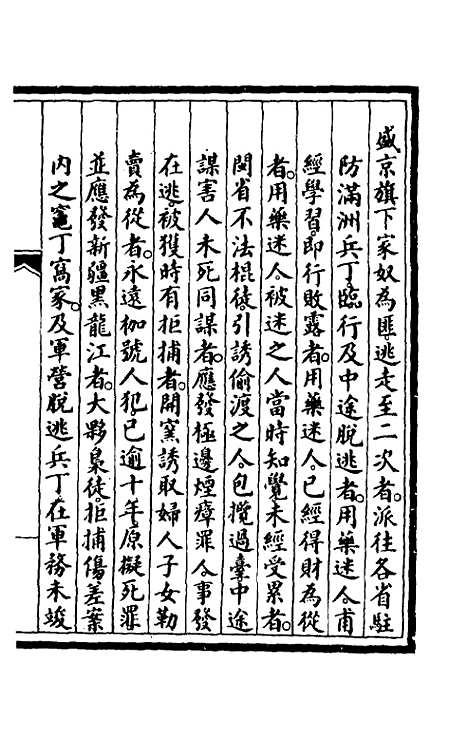 盛京旗下家奴為匪逃走至二次者。派往各省駐
防滿洲兵丁。臨行及中途脫逃者。用藥迷人。甫
經學習。即行敗露者。用藥迷人。已經得財為從
者。用藥迷人。被迷之人當時知覺。未經受累者。
閩省不法棍徒引誘偷渡之人。包攬過臺。中途
謀害人未死同謀者。應發極邊煙瘴罪人。事發
在逃。被獲時有拒捕者。開窯誘取婦人子女勒
賣為從者。永遠枷號人犯。已逾十年。原擬死罪
並應發新疆黑龍江者。大夥梟徒。拒捕傷差案
內之竈丁窩家。及軍營脫逃兵丁。在軍務未竣